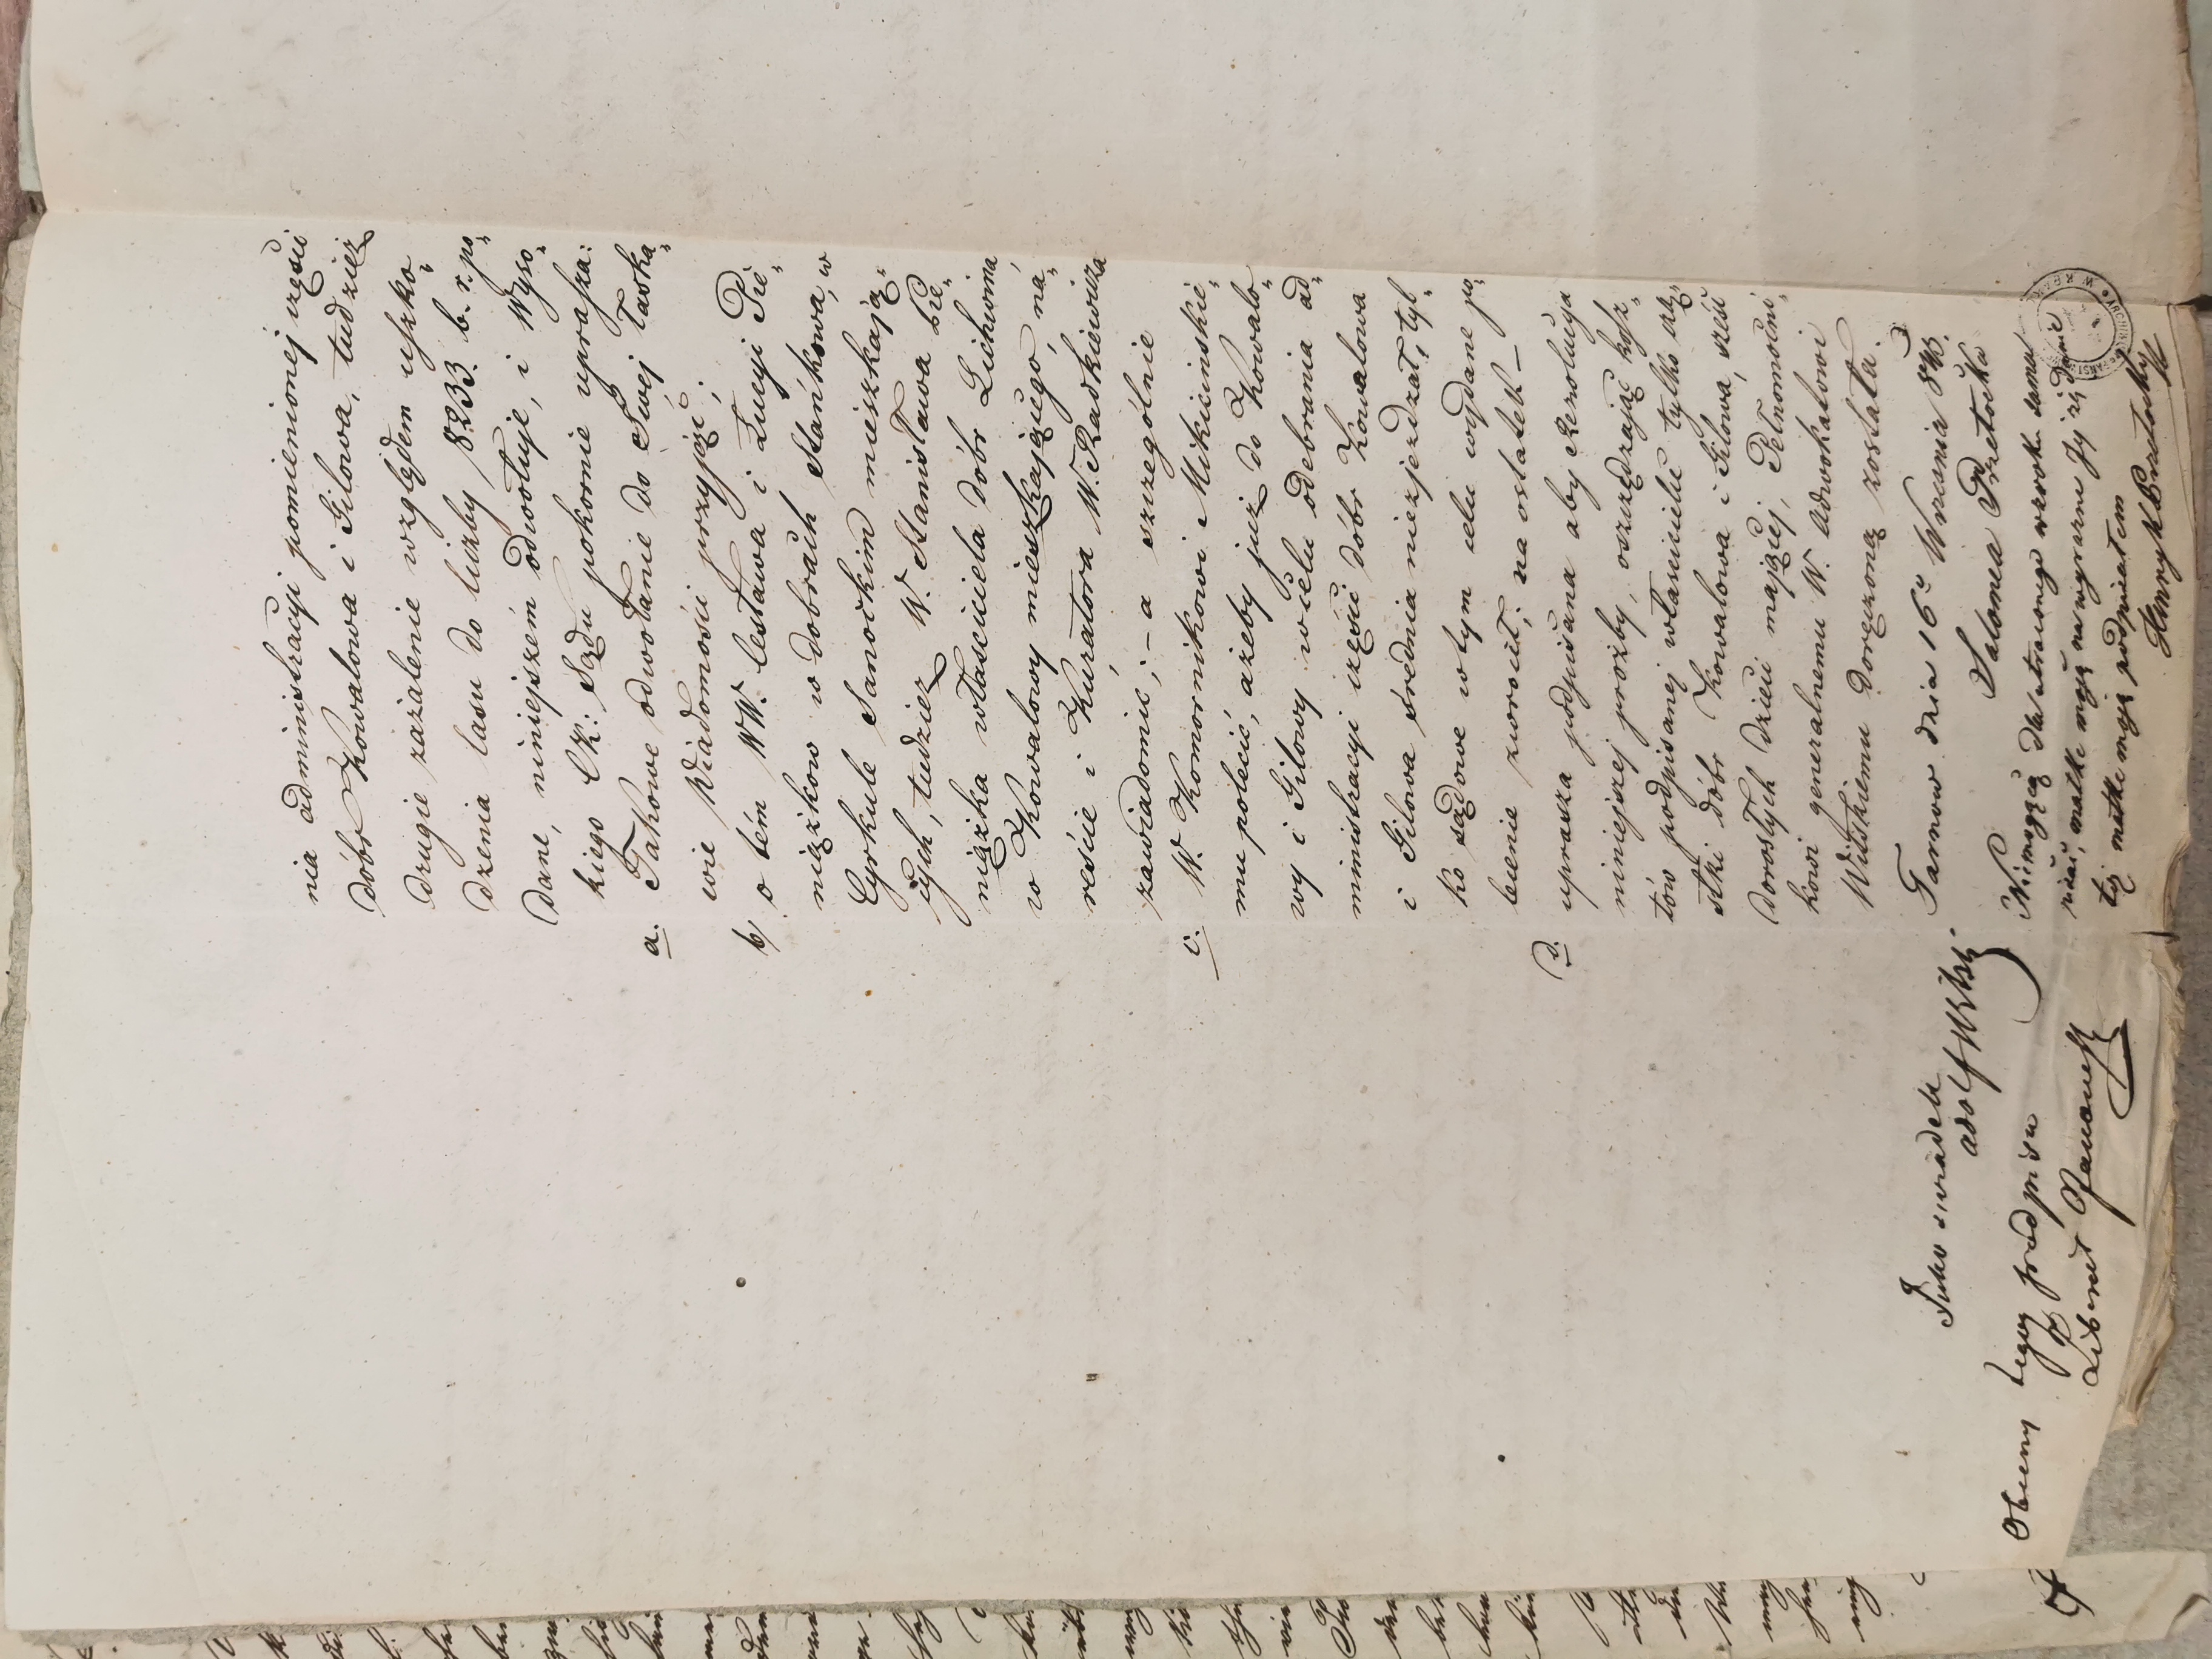 nia administracyi pomienionej części
dóbr Kowalowa i Gilowa, tudzież
drugie zażalenie względem uszko„
dzenia lasu do liczby 8233. b. r. po„
dane, niniejszém odwołuje, i Wyso„
kiego CK: Sądu pokornie uprasza:
a. Takowe odwołanie do Swej Łaska„
wie Wiadomości przyjąć;
b) o tém WW. Czesława i Łucyi Pie„
niążkow w dobrach Stańkowa, w
Cyrkule Sanockim mieszkają„
cych, tudzież W. Stanisława Pie„
niążka właściciela dóbr Lichwina,
w Kowalowy mieszkającego, na„
reście i Kuratora W. Radkiewicza
zawiadomić; – a szczególnie
c. W. Komornikowi Mikicinskie„
mu polecić, ażeby już do Kowalo„
wy i Gilowy w celu odebrania ad„
ministracyi części dóbr Kowalowa
i Gilowa średnia niezjeżdżał, tyl„
ko sądowe w tym celu wydane po„
lecenie zwrócił; na ostatek –
d. uprasza podpisana aby rezolucya
niniejszej prośby, oszczędzając kosz„
tów podpisanej właścicielce tylko czą„
stki dóbr Kowalowa i Gilowa, sześć
dorosłych dzieci mającej, Pełnomocni„
kowi generalnemu W. Adwokatowi
Witskiemu doręczoną została.
Tarnow dnia 16º Września 843.
Salomea Przetocka
Niemogącą dla utraconego wzroku sama
pisać, matke moję na wyrazne Jej żądanie
tęż matke moję podpisałem
Henryk Przetocki
Jako swiadek
Adolf
Obecny tegoż podpisu